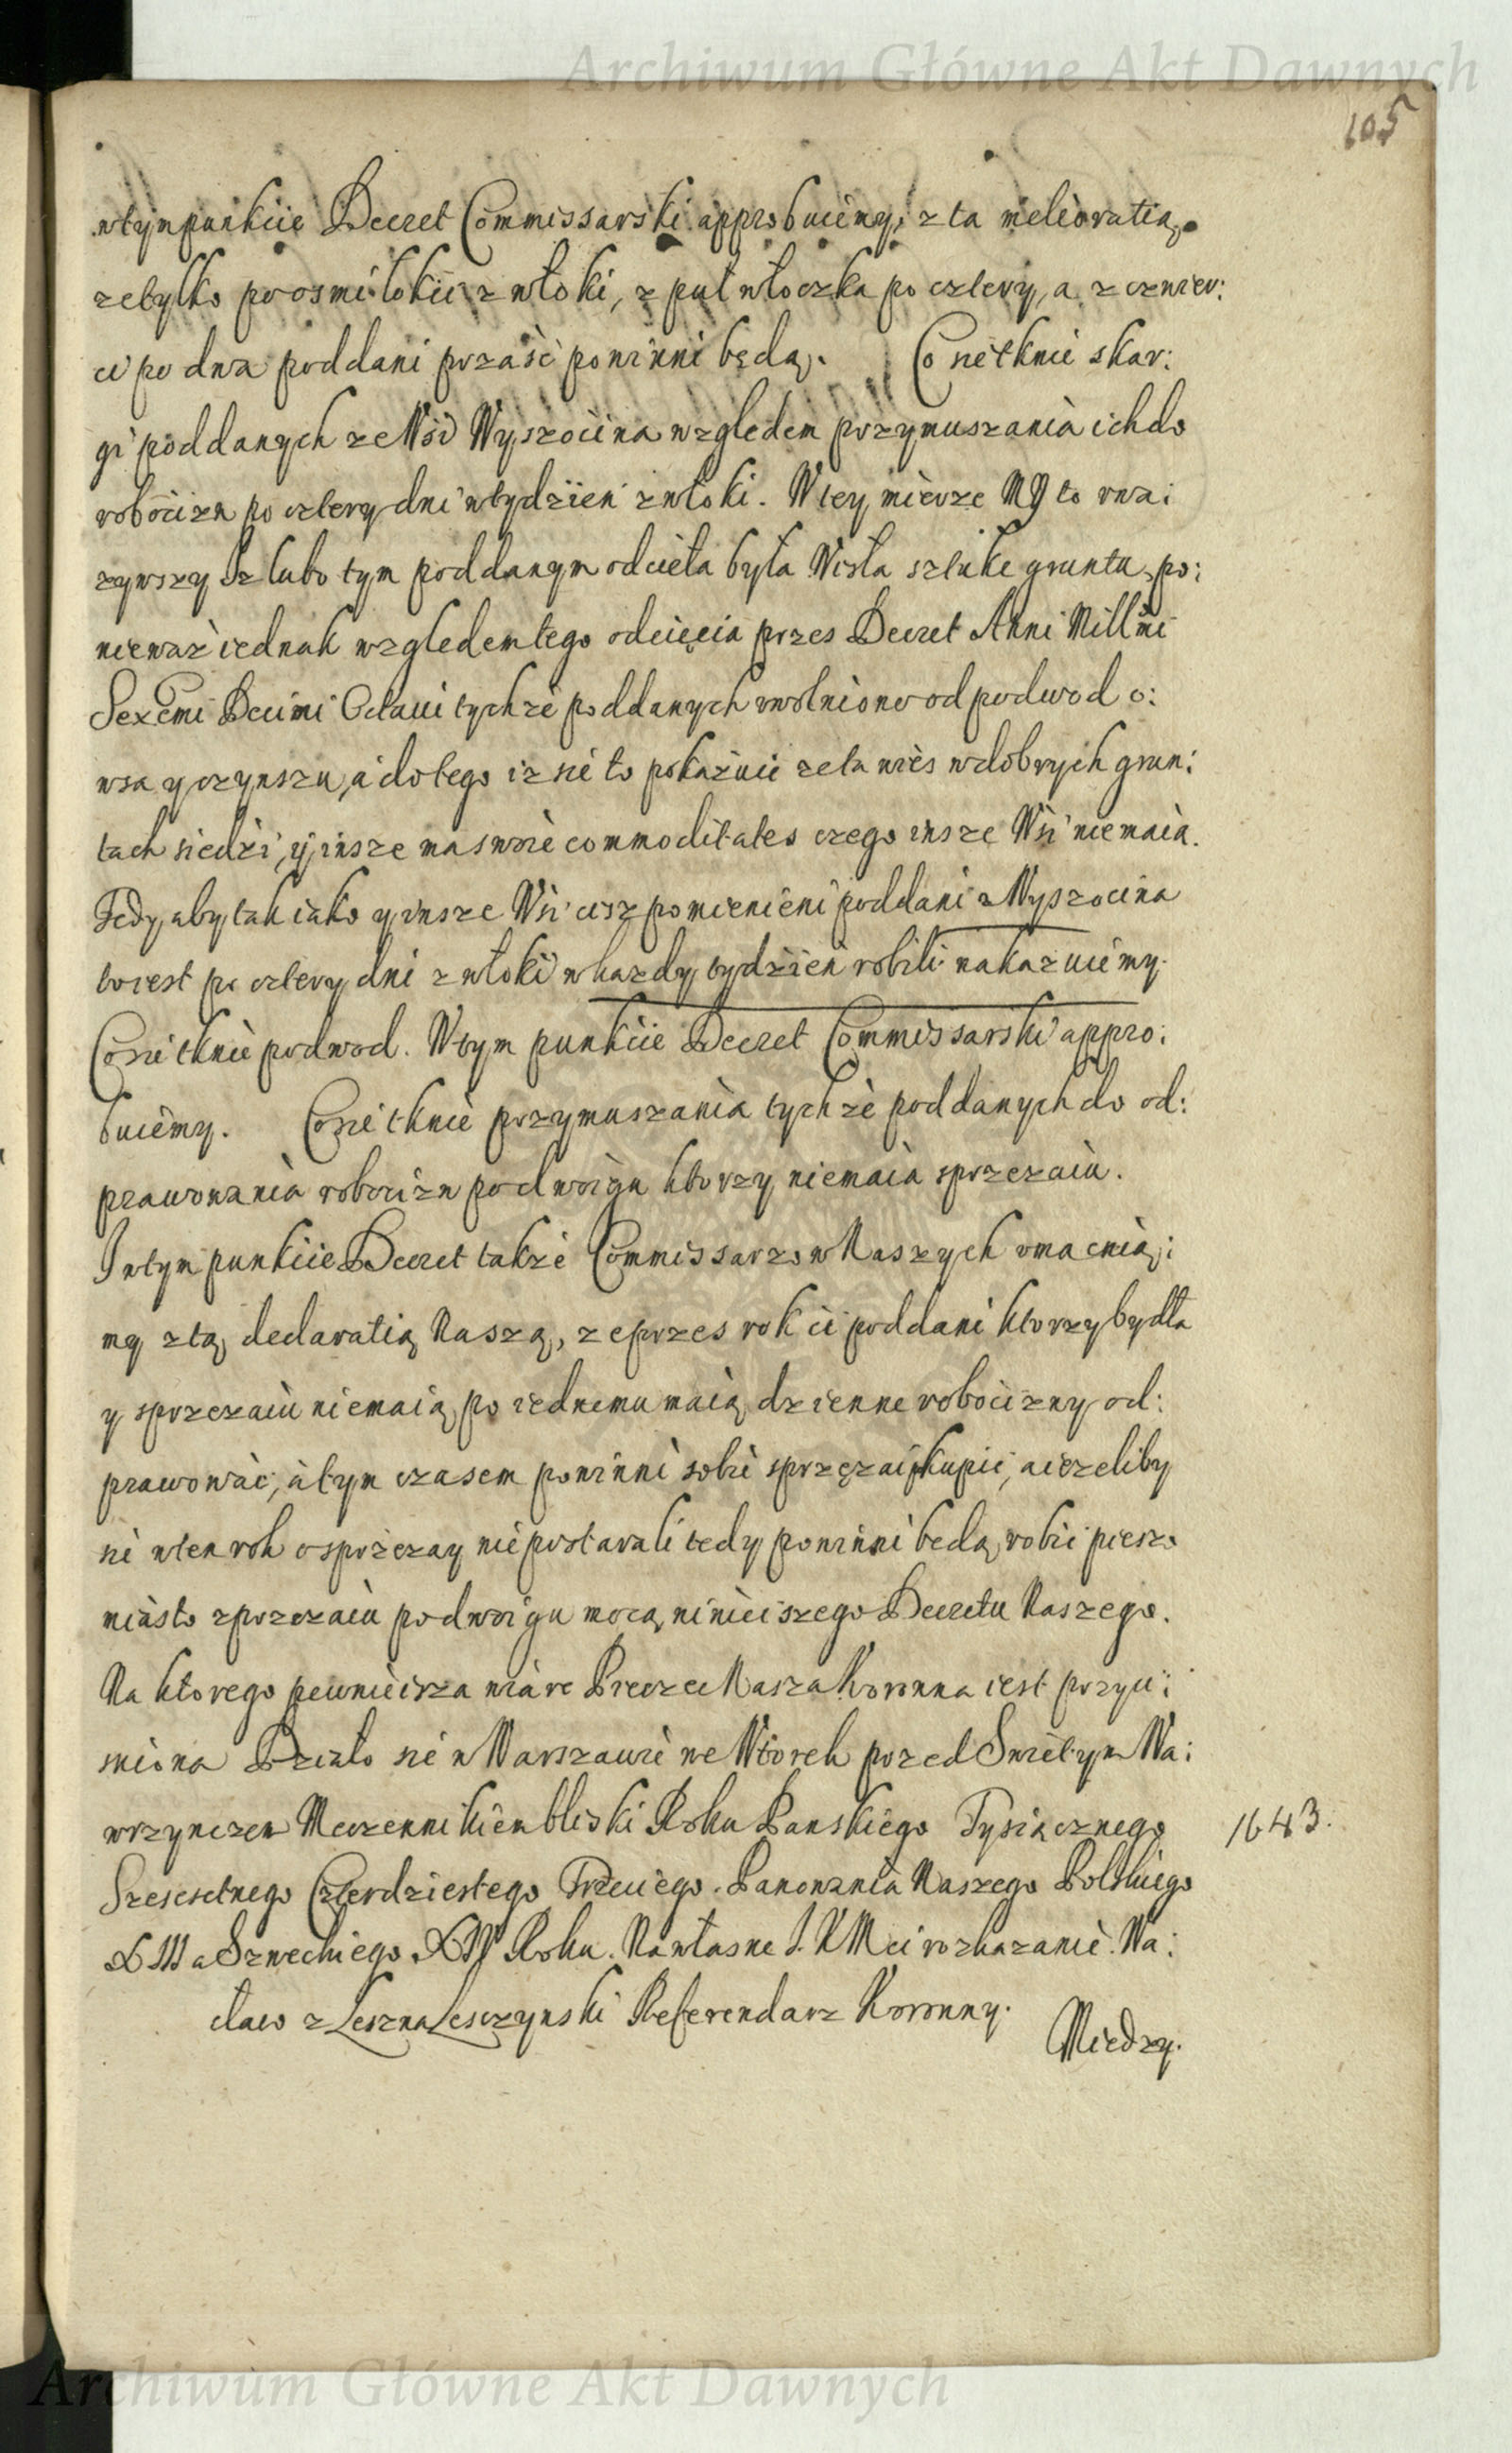 Archiwum Główne Akt Dawnych
105
wtym punkcie Decret Commissarski approbuiemy, z ta melioratią,
ze tylko po osmi łokci z włoki, z puł włoczka po cztery, a z czwier:
ci po dwa poddani prząść powinni będą. Co się tknie skar:
gi poddanych ze Wsi Wyszocina względem przymuszania ich do
robocizn po cztery dni w tydzień z włoki. W tey mierze MY to uwa:
zywszy Iz lubo tym poddanym odcieła była Wisła sztukę gruntu, po:
nieważ iednak względem tego odcięcia przes Decret Anni Mill̃mi
Sexc̃mi Decimi Octaui tychże poddanych uwolniono od podwod o:
wsa y czynszu, a do tego iz się to pokazuie ze ta wies w dobrych grun:
tach siedzi, y insze ma swoie commoditates czego insze Wsi nie maią.
Tedy aby tak iako y insze Wsi cisz pomienieni poddani z Wyszocina
to iest po cztery dni z włoki w kazdy tydzień robili nakazuiemy.
Co się tknie podwod. W tym punkcie Decret Commissarski appro:
buiemy. Co się tknie przymuszania tychże poddanych do od:
prawowania robocizn po dwoigu ktorzy nie maią sprzezaiu.
I w tym punkcie Decret także Commissarzow Naszych umacnia:
my z tą declaratią Naszą, ze przes rok ci poddani ktorzy bydła
y sprzezaiu nie maią, po iednemu maią dzienne robocizny od:
prawować, a tym czasem powinni sobie sprzęzai kupić, a iezeliby
się w ten rok o sprzezay nie postarali tedy powinni będą robić pieszo
miasto sprzezaiu po dwoigu mocą ninieiszego Decretu Naszego.
Na ktorego pewnieisza wiare Pieczec Nasza Koronna iest przyci:
sniona Działo się w Warszawie we Wtorek przed Swiętym Wa:
wrzyncem Męczennikiem bliski Roku Panskiego Tysiącznego
Szescsetnego Czterdziestego Trzeciego. Panowania Naszego Polskiego
XI a Szweckiego XII Roku. Na własne J. K Mci rozkazanie. Wa:
cław z Leszna Lesczynski Referendarz Koronny.
Miedzy.
1643.
Archiwum Główne Akt Dawnych